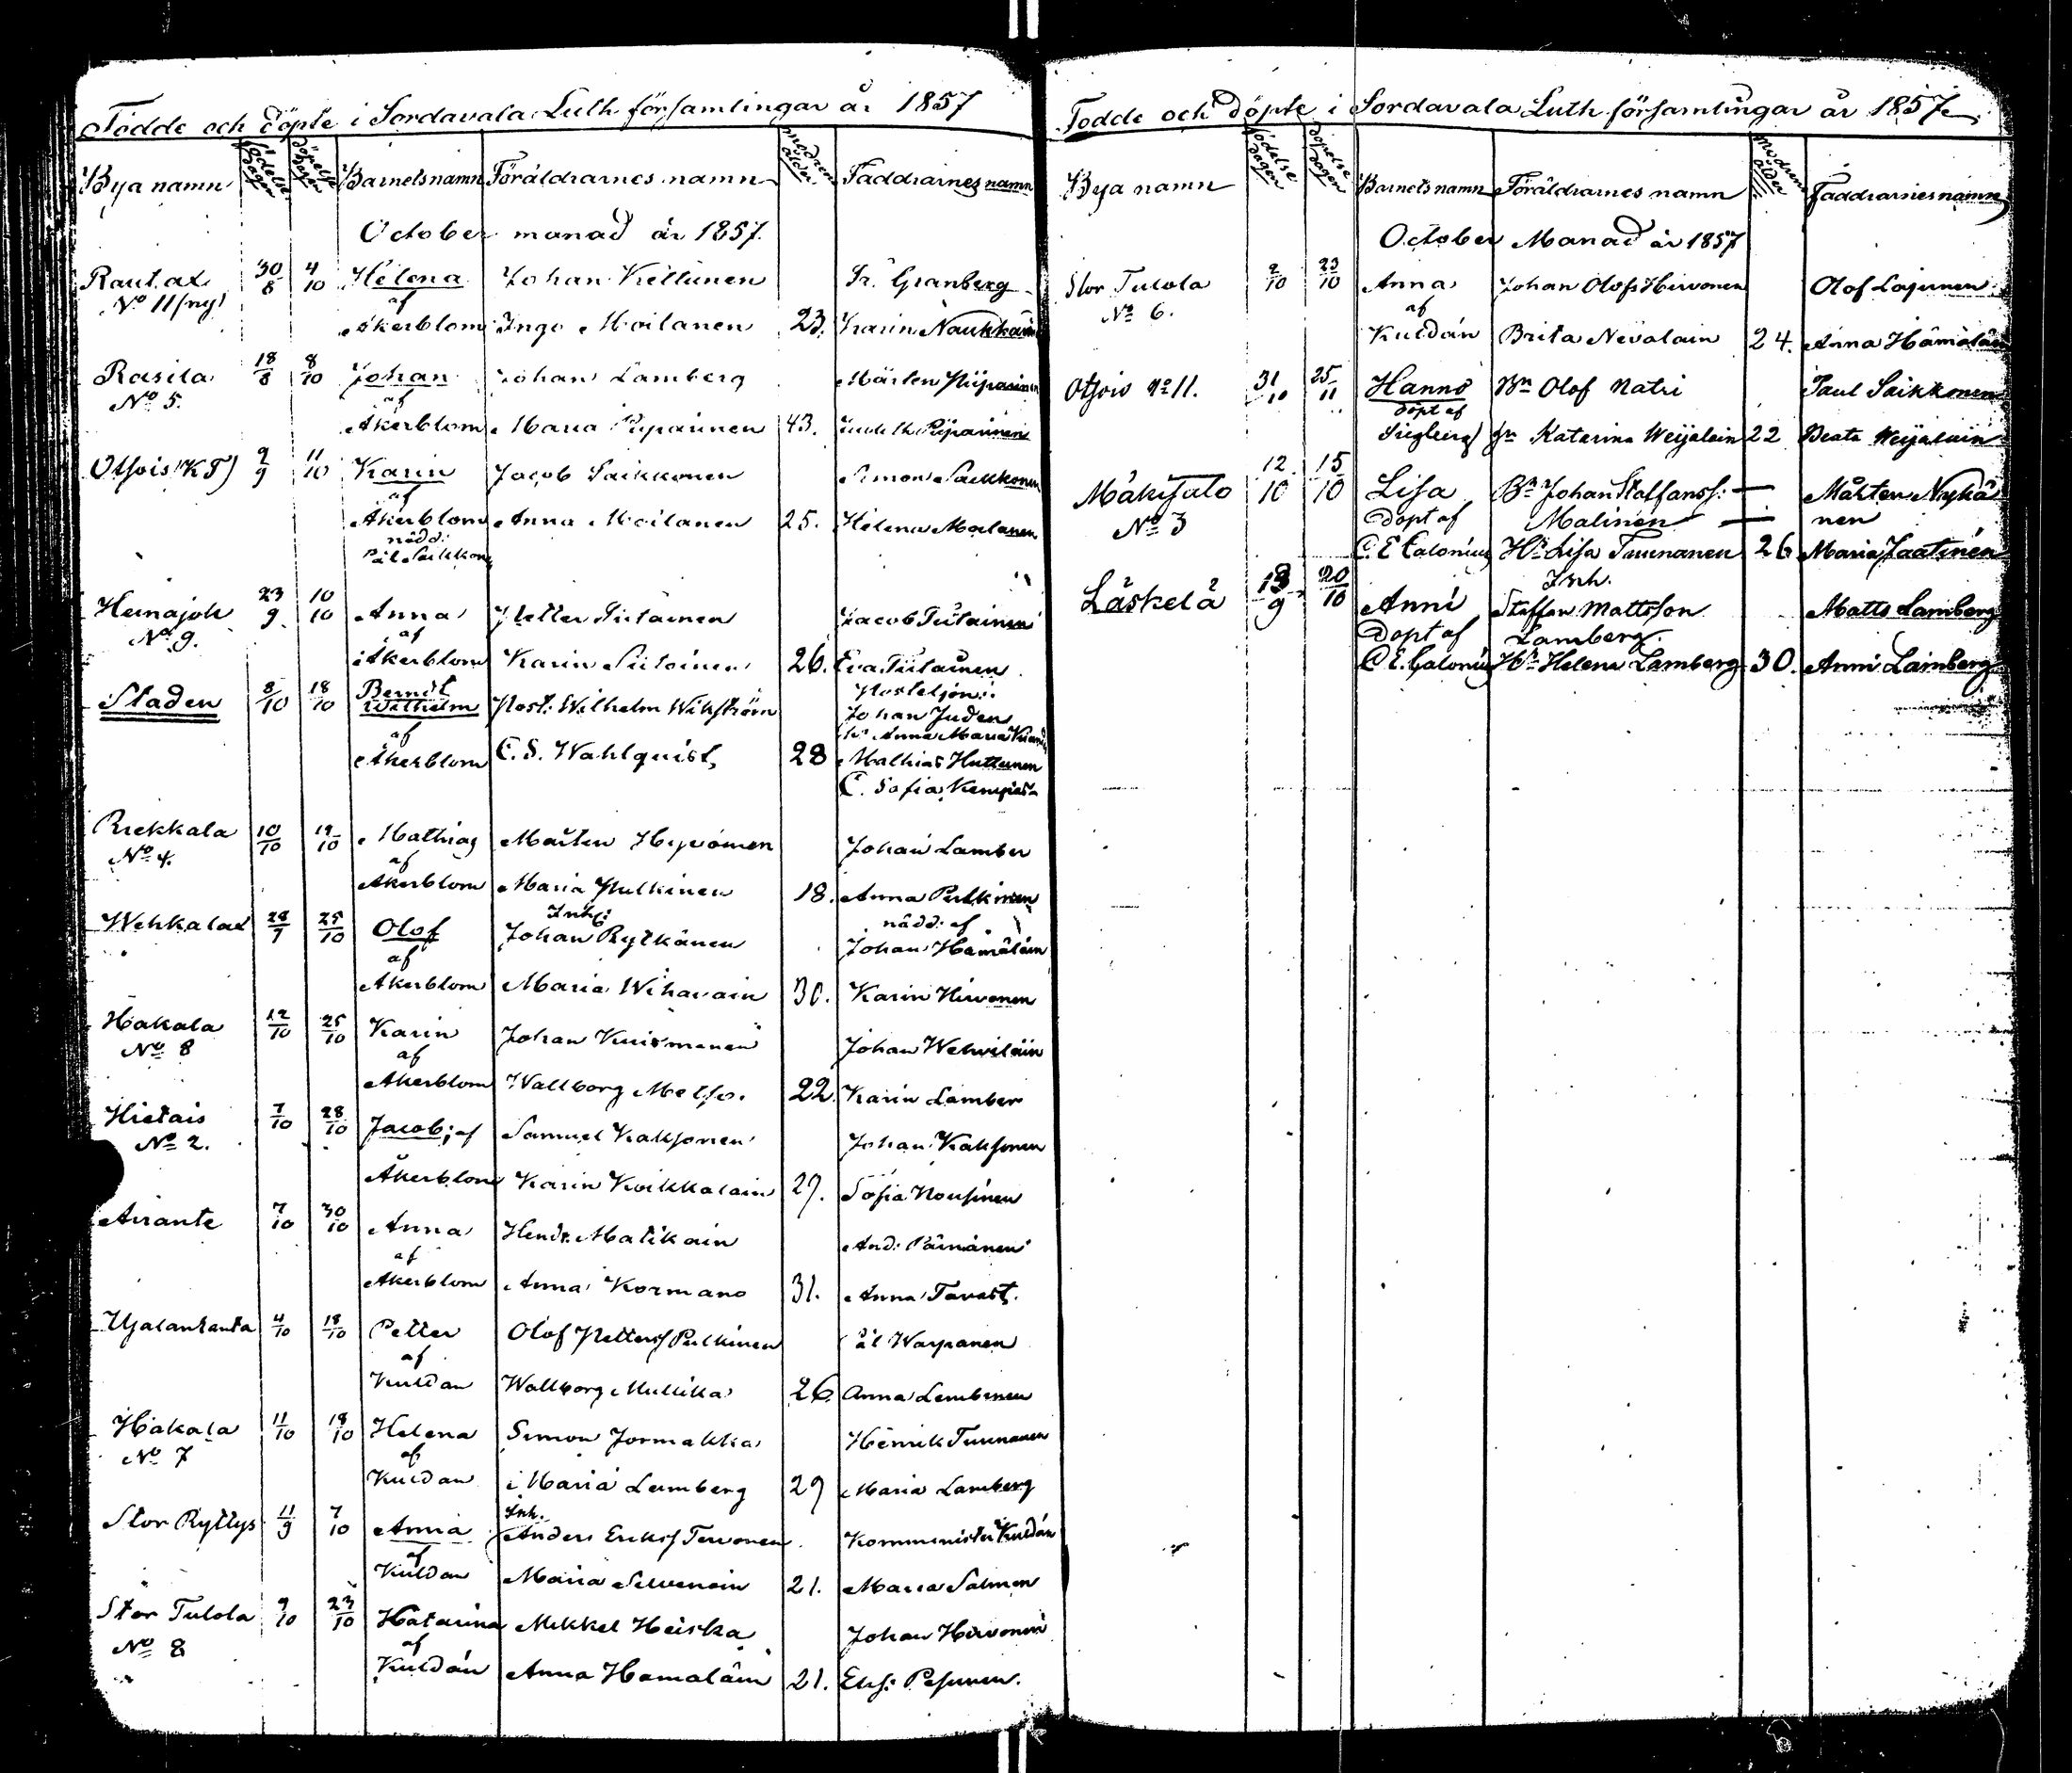 Födde och döpte i Sordavala Luth församlingar år 1857
Bya namn födelse dagen döpelse dagen Barnets namn Föräldrarnes namn modrens ålder Faddrarnes namn
October manad år 1857.
Rautax 30/8 4/10 Helena Johan Kettunen Fr. Granberg
No 11 (ny) af
Åkerblom Inga Moilanen 23. Karin Naukkarin
Rasila 18/8 8/10 Johan Johan Lamberg Mårten Piiparinen
No 5. af
Åkerblom Maria Piiparinen 43. Judith Piiparinen
Otsois (KT) 9/9 11/10 Karin Jacob Saikkonen Simon Saikkonen
af
Åkerblom Anna Moilanen 25. Helena Moilanen
nödd:
Pål Saikkon
Heinäjok 23/9 10/10 Anna Petter Tiitainen Jacob Tiitainen
No 9. af
Åkerblom Karin Siitoinen 26. Eva Tiitainen
Staden 8/10 18/10 Berndt Wilhelm Post: Wilhelm Wikström Postiljon: Johan Juden
af hr Anna Maria
Åkerblom C. S. Wahlquist, 28 Mathias Huttunen
C. Sofia
Riekkala 10/10 19/10 Mathias Mårten Hyvönen Johan Lamber
No 4. af
Åkerblom Maria Pulkinen 18. Anna Pulkinen
Wehkalax 28/7 25/10 Olof Inh: Johan Rytkänen nödd: af Johan Hämäläin
af
Åkerblom Maria Wihavain 30. Karin Hirvonen
Hakala 12/10 25/10 Karin Johan Kuismanen Johan Wehviläin
No 8 af
Åkerblom Wallborg Metso. 22. Karin Lamber
Hietais 7/10 28/10 Jacob; af Samuel Kaksonen Johan Kaksonen
No 2.
Åkerblom Karin Koikkalain 27. Sofia Nousinen
Airante 7/10 30/10 Anna Hendr. Matikain And: Päivänen
af
Åkerblom Anna Kormano 31. Anna Tavast.
Ujalanranta 4/10 18/10 Petter Olof Petterss Pulkinen Pål Warpanen
af
Kuldan Wallborg Mullikka 26. Anna Lembinen
Hakala 11/10 18/10 Helena Simon Jormakka Henrik Tuunanen
No 7 af
Kuldan Maria Lamberg 29 Maria Lamberg
Stor Ryttys 11/9 7/10 Anna Inh. Anders Ericss Tervonen Komminister Kuldán
af
Kuldan Maria 21. Maria Salmen
Stor Tulola 9/10 23/10 Katarina Mikkel Heiska Johan Hirvonen
No 8 af
Kuldán Anna Hamaläin 21. Elis: Pesunen.
Födde och döpte i Sordavala Luth församlingar år 1857
Bya namn födelse dagen döpelse dagen Barnets namn Föräldrarnes namn modrens ålder Faddrarnes namn
October Manad år 1857
Stor Tulola 2/10 23/10 Anna Johan Olofs Hirvonen Olof Lajunen
No 6. af
Kuldán Brita Nevalain 24. Anna Hämäläin
Otsois No 11. 31/10 25/11 Hanno Bn Olof Natri Paul Saikkonen
döpt af
Siegberg Hn Katarina Weijalain 22 Beata Weijalain
Mäkisalo 12/10 15/10 Lisa Bn Johan Staffanss: Mårten Nykä
No 3 döpt af Malinen nen
C. E Calonius Hn Lisa Tuunanen 26 Maria Jaatinen
Läskelä 13/9 20/10 Anni Inh. Staffan Mattsson Matts Lamberg
döpt af Lamberg.
C E. Calonius Hn Helena Lamberg 30. Anni Lamberg